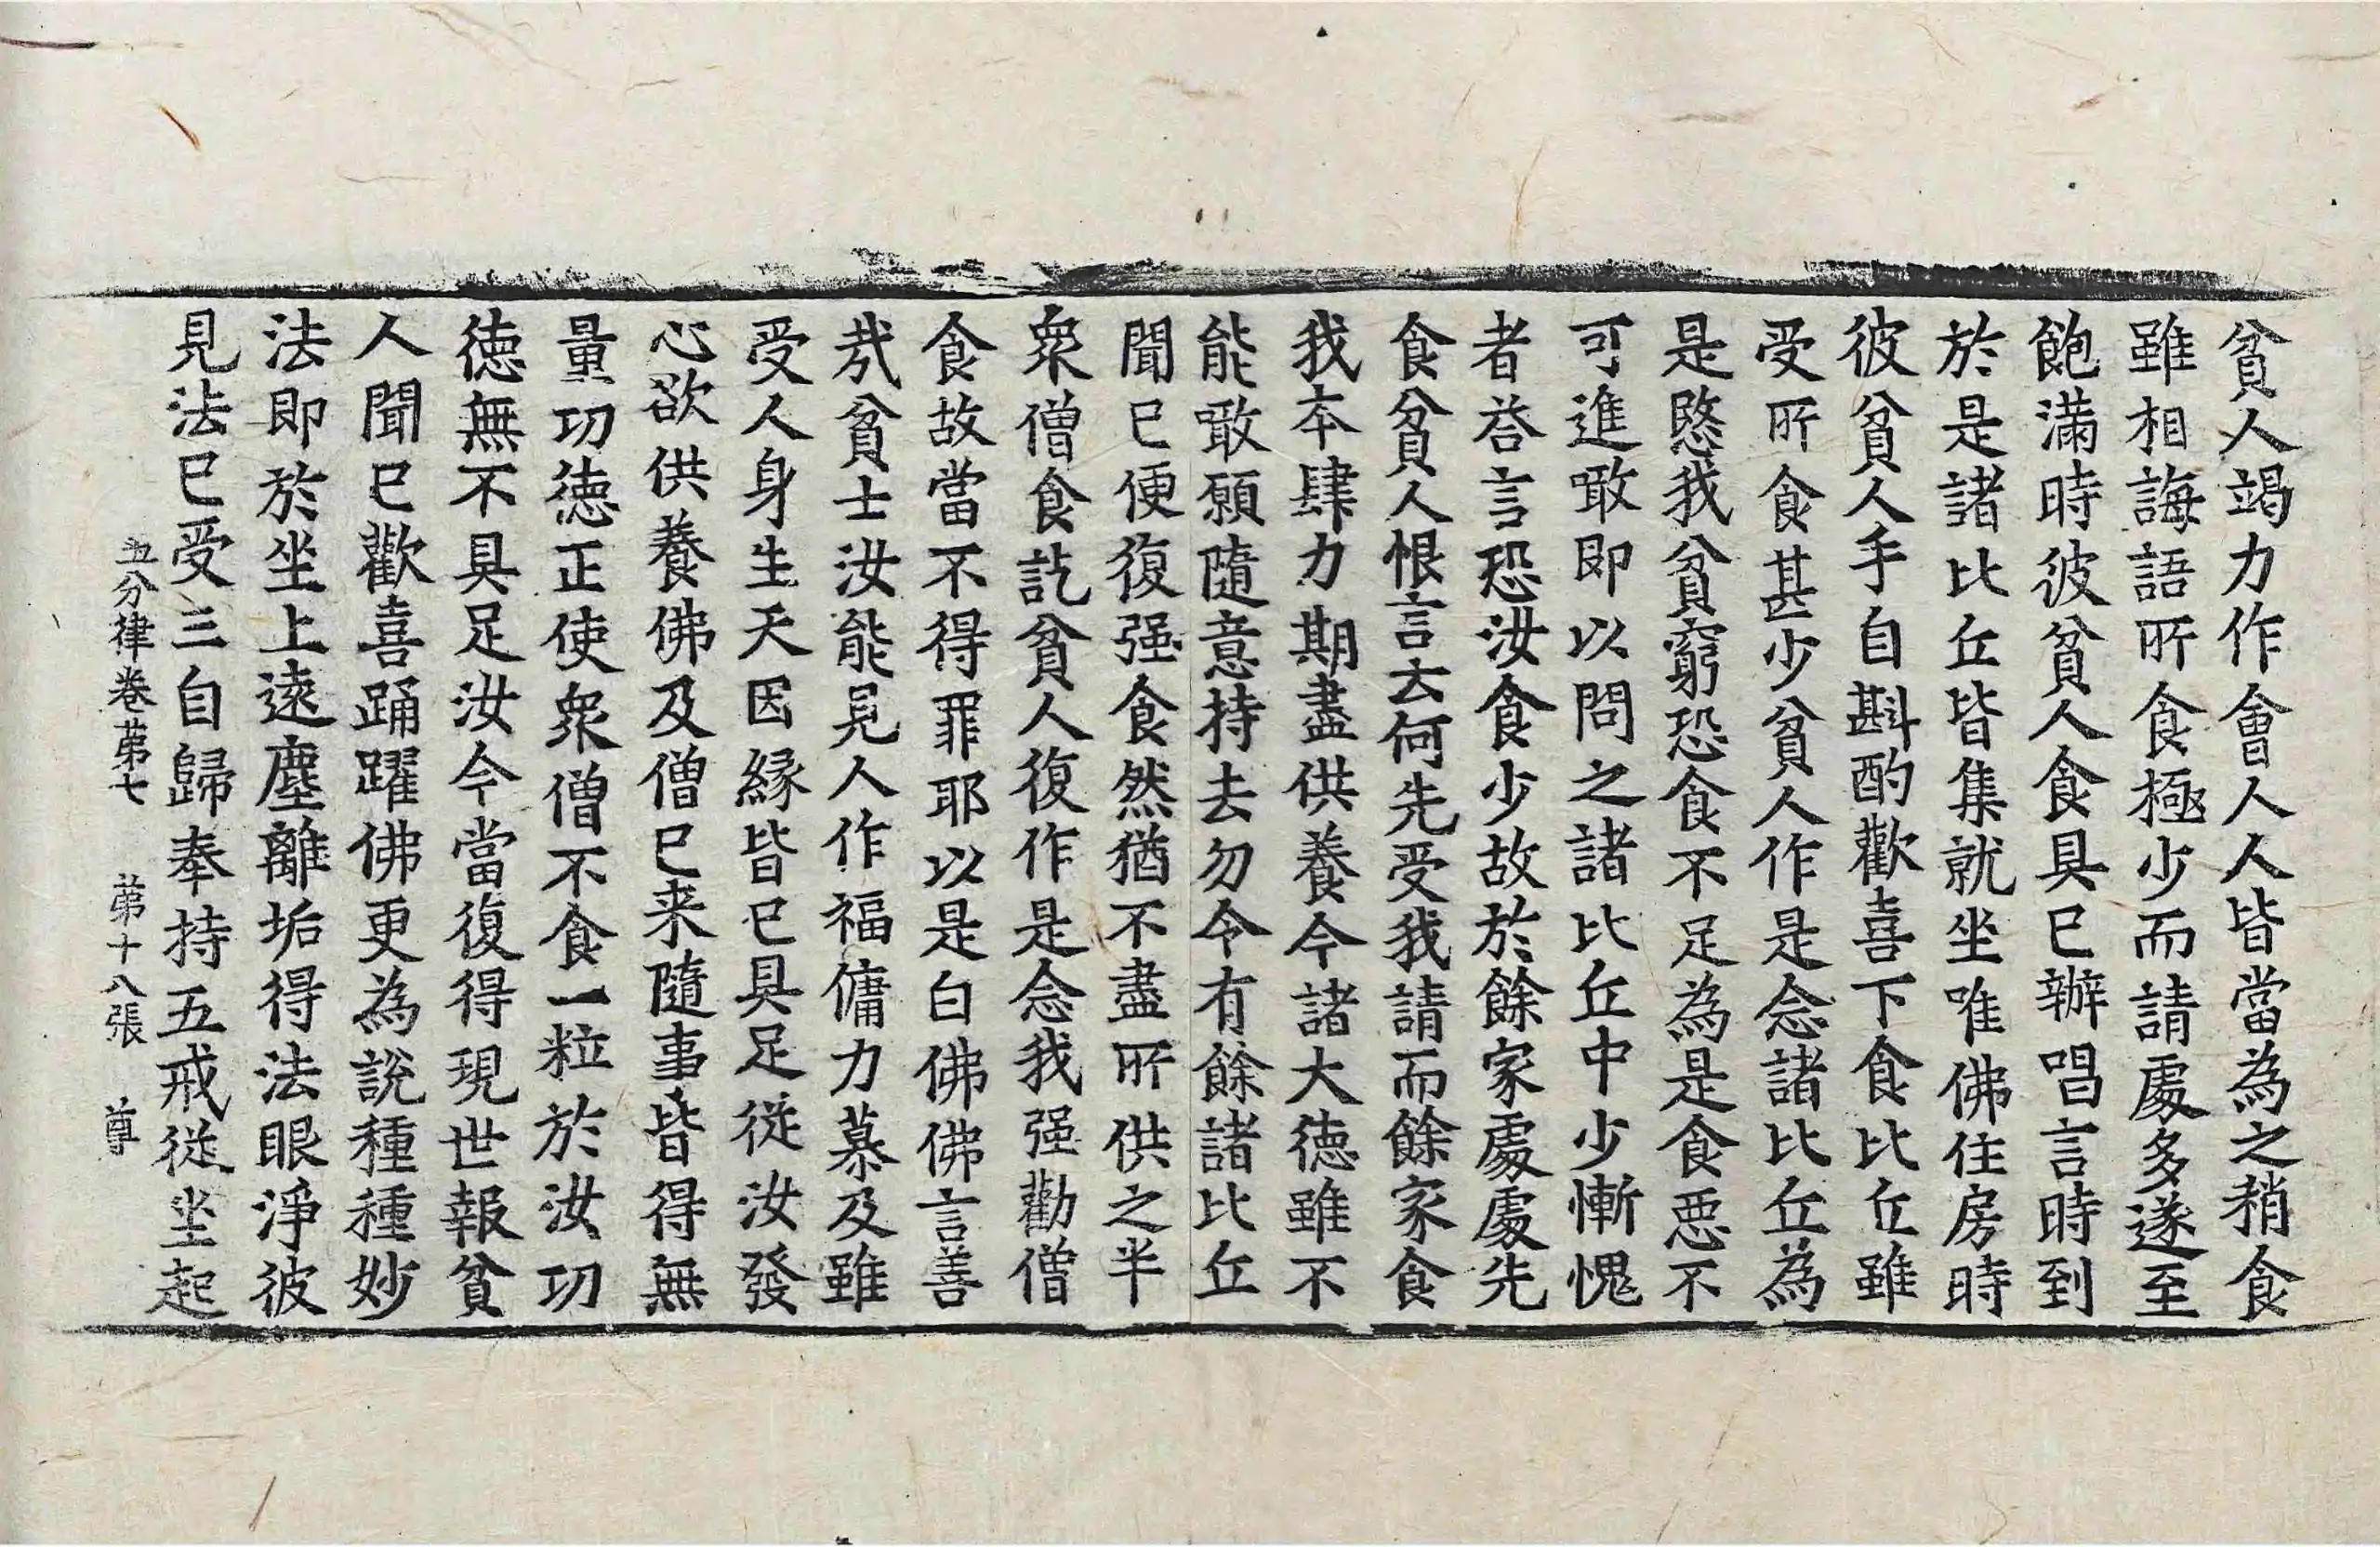 貧人竭力作會人人皆當為之稍食
雖相誨語所食極少而請處多遂至
飽滿時彼貧人食具已辦唱言時到
於是諸比丘皆集就坐唯佛住房時
彼貧人手自斟酌歡喜下食比丘雖
受所食甚少貧人作是念諸比丘為
是愍我貧窮恐食不足為是食惡不
可進噉即以問之諸比丘中少慚愧
者荅言恐汝食少故於餘家處處先
食貧人恨言云何先受我請而餘家食
我本肆力期盡供養今諸大德雖不
能噉願隨意持去勿令有餘諸比丘
聞已便復强食然猶不盡所供之半
衆僧食訖貧人復作是念我强勸僧
食故當不得罪耶以是白佛佛言善
哉貧士汝能見人作福傭力慕及雖
受人身生天因緣皆已具足從汝發
心欲供養佛及僧已来隨事皆得無
量功德正使衆僧不食一粒於汝功
德無不具足汝今當復得現世報貧
人聞已歡喜踊躍佛更為說種種妙
法即於坐上遠塵離垢得法眼淨彼
見法已受三自歸奉持五戒從坐起
五分律卷第七 第十八張 尊